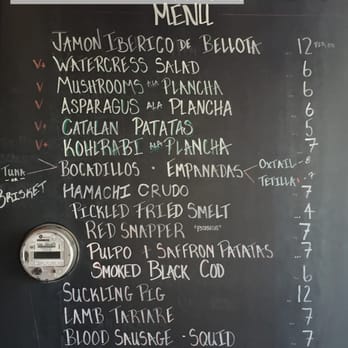 MENU
JAMON IBERICO DE BELLOTA 12
V. WATERCRESS SALAD 6
V. MUSHROOMS ALA PLANCHA 6
V. ASPARAGUS ALA PLANCHA 6
V. CATALAN PATATAS 5
V. KOHLRABI ALA PLANCHA 7
TUNA BRISKET BOCADILLOS · EMPANADAS OXTAIL - 8
TETILLA - 7
HAMACHI CRUDO 7
PICKLED FRIED SMELT 4
RED SNAPPER 7
PULPO + SAFFRON PATATAS 7
SMOKED BLACK COD 6
SUCKLING PIG 12
LAMB TARTARE 7
BLOOD SAUSAGE · SQUID 7